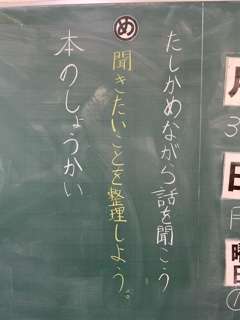 たしかめながら話を聞こう
め 聞きたいことを整理しよう。
本のしょうかい
月
3
日
曜日